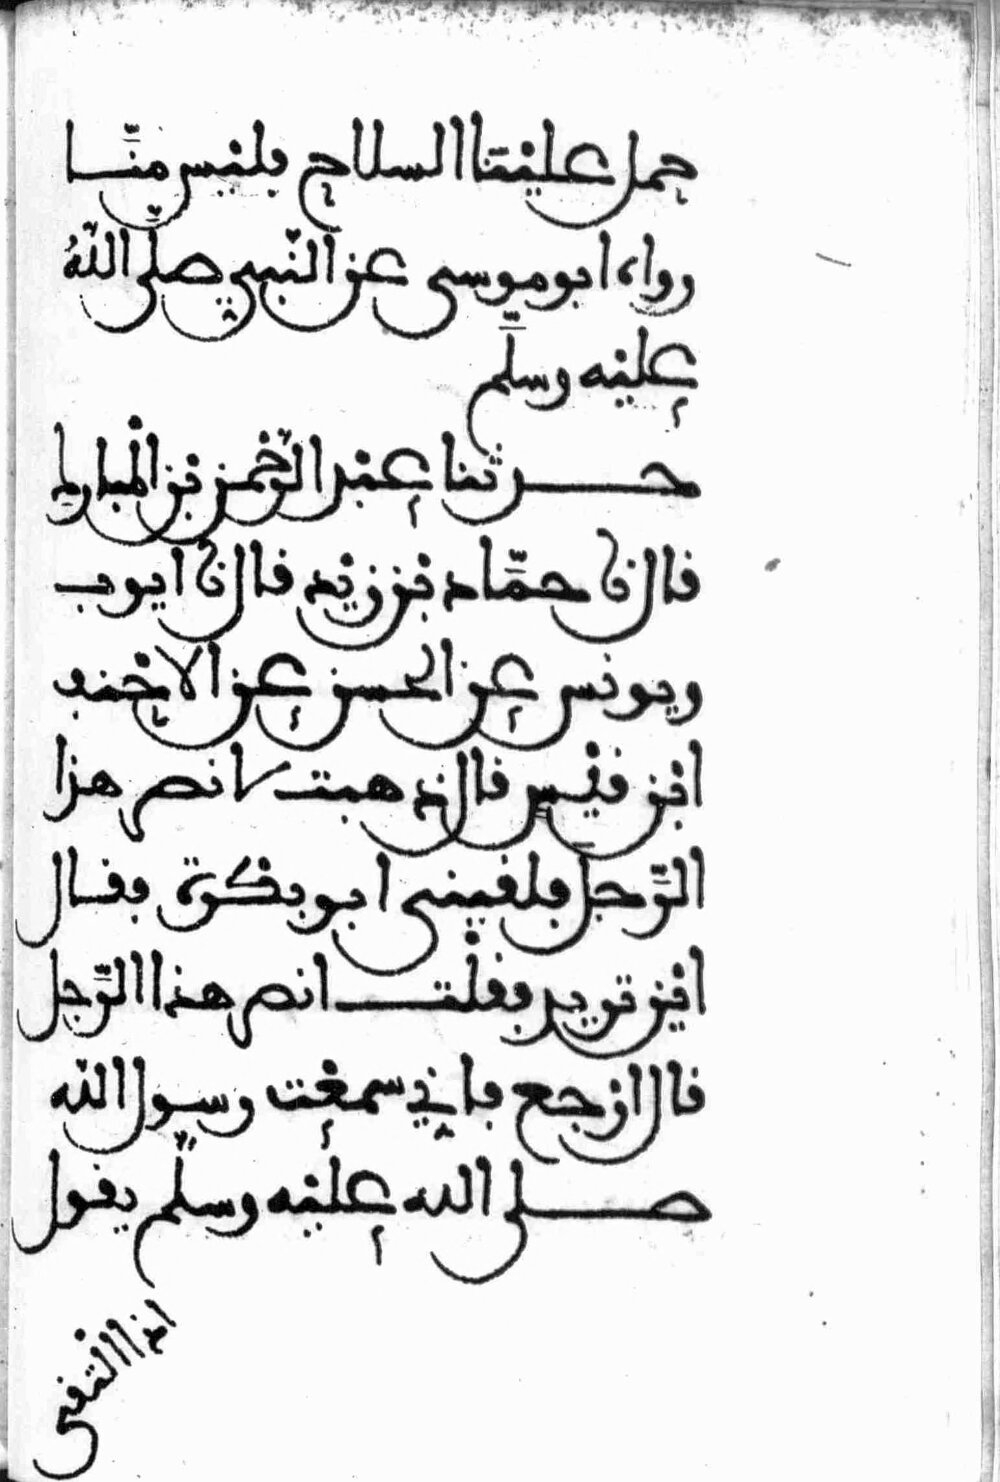 حمل علينا السلاح فليس منّا
رواه ابو موسى عن النّبي صلّى اللّهُ
عليه وسلّم
حدثنا عبد الرّحمن بن المبارك
قال نا حمّاد بن زيد قال نا ايوب
ويونس عن الحسن عن الاحنف
ابن قيس قال ذهبت لانصر هذا
الرّجل فلقيني ابو بكرة فقال
اين تريد فقلت انصر هذا الرّجل
قال ارجع فاني سمعت رسول اللّه
صلى الله عليه وسلّم يقول
اذا التقى